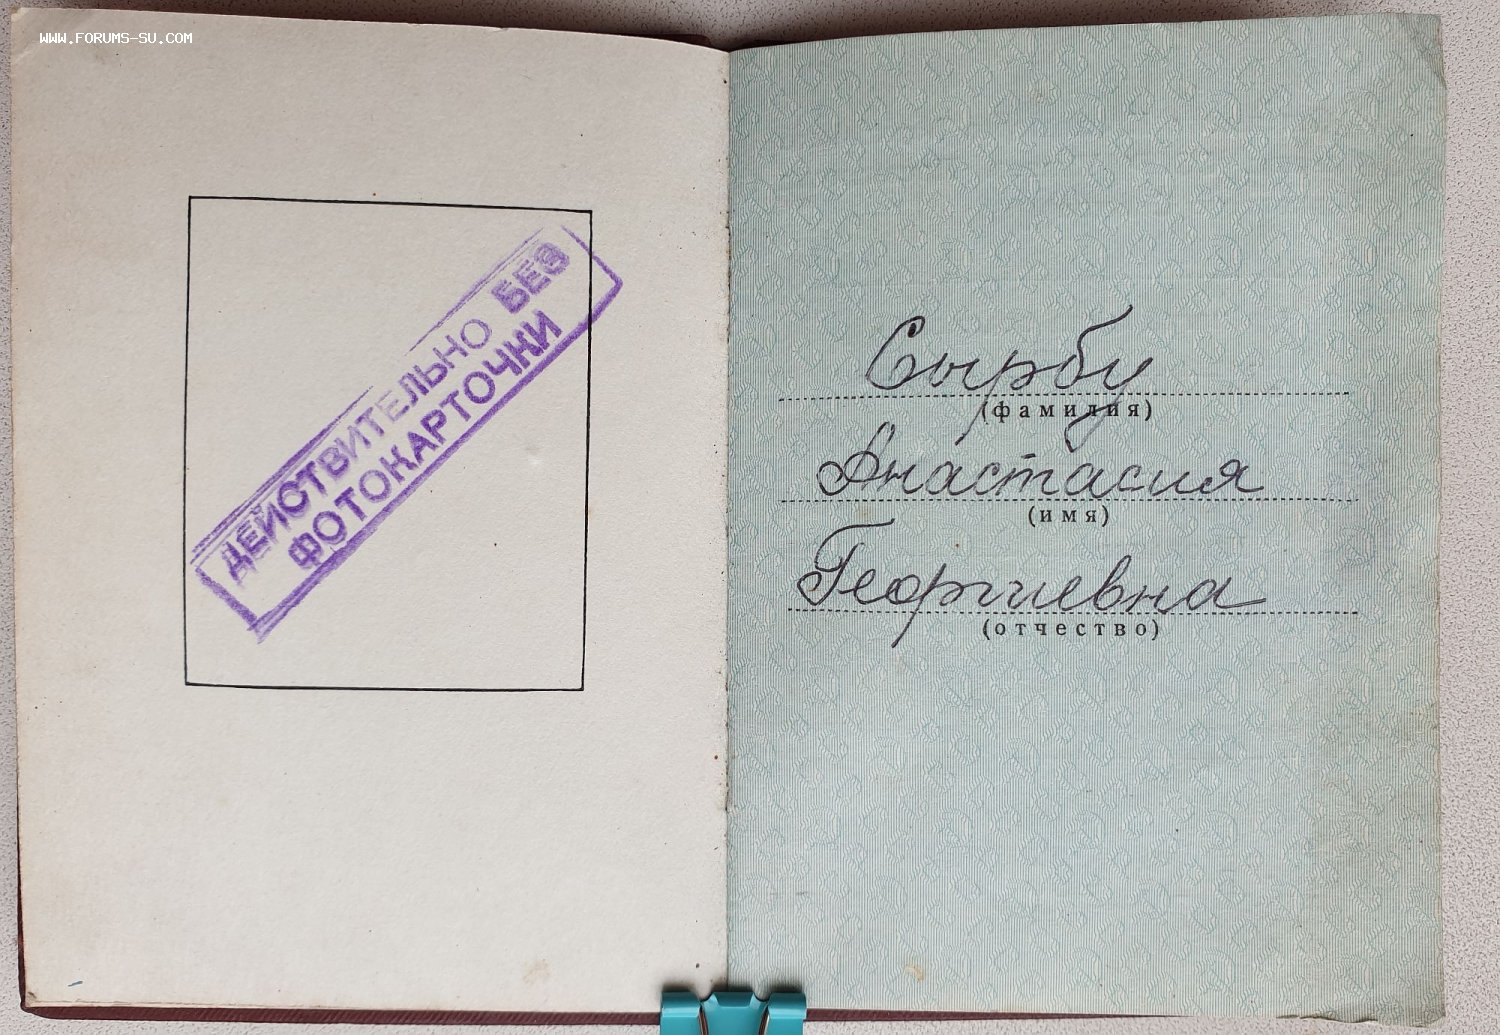 WWW.FORUMS-SU.COM
ДЕЙСТВИТЕЛЬНО БЕЗ
ФОТОКАРТОЧКИ
Сырбу
(фамилия)
Анастасия
(имя)
Георгиевна
(отчество)